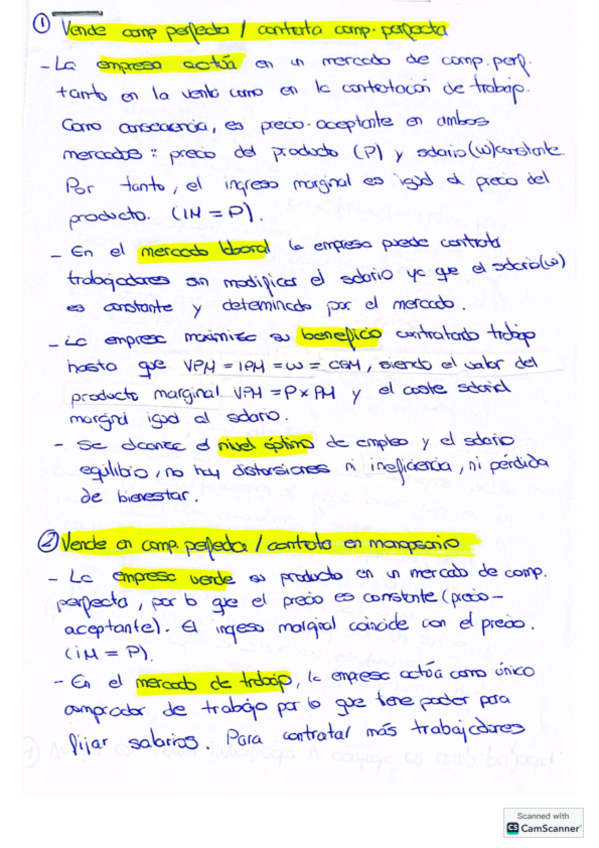 ① Vende comp perfecta / contrata comp. perfecta
- La empresa actúa en un mercado de comp. perf.
tanto en la venta como en la contratación de trabajo.
Como consecuencia, es precio-aceptante en ambos
mercados: precio del producto (P) y salario (w) constante.
Por tanto, el ingreso marginal es igual al precio del
producto. (IM = P).
- En el mercado laboral la empresa puede contratar
trabajadores sin modificar el salario ya que el salario (w)
es constante y determinado por el mercado.
- La empresa maximiza su beneficio contratando trabajo
hasta que VPM = IPM = W = CSM, siendo el valor del
producto marginal VPM = P x PM y el coste salarial
marginal igual al salario.
- Se alcanza el nivel óptimo de empleo y el salario
equilibrio, no hay distorsiones ni ineficiencia, ni pérdida
de bienestar.
② Vende en comp. perfecta / contrata en monopsonio
- La empresa vende su producto en un mercado de comp.
perfecta, por lo que el precio es constante (precio-
aceptante). El ingreso marginal coincide con el precio.
(IM = P).
- En el mercado de trabajo, la empresa actúa como único
comprador de trabajo por lo que tiene poder para
fijar salarios. Para contratar más trabajadores
Scanned with
CS CamScanner